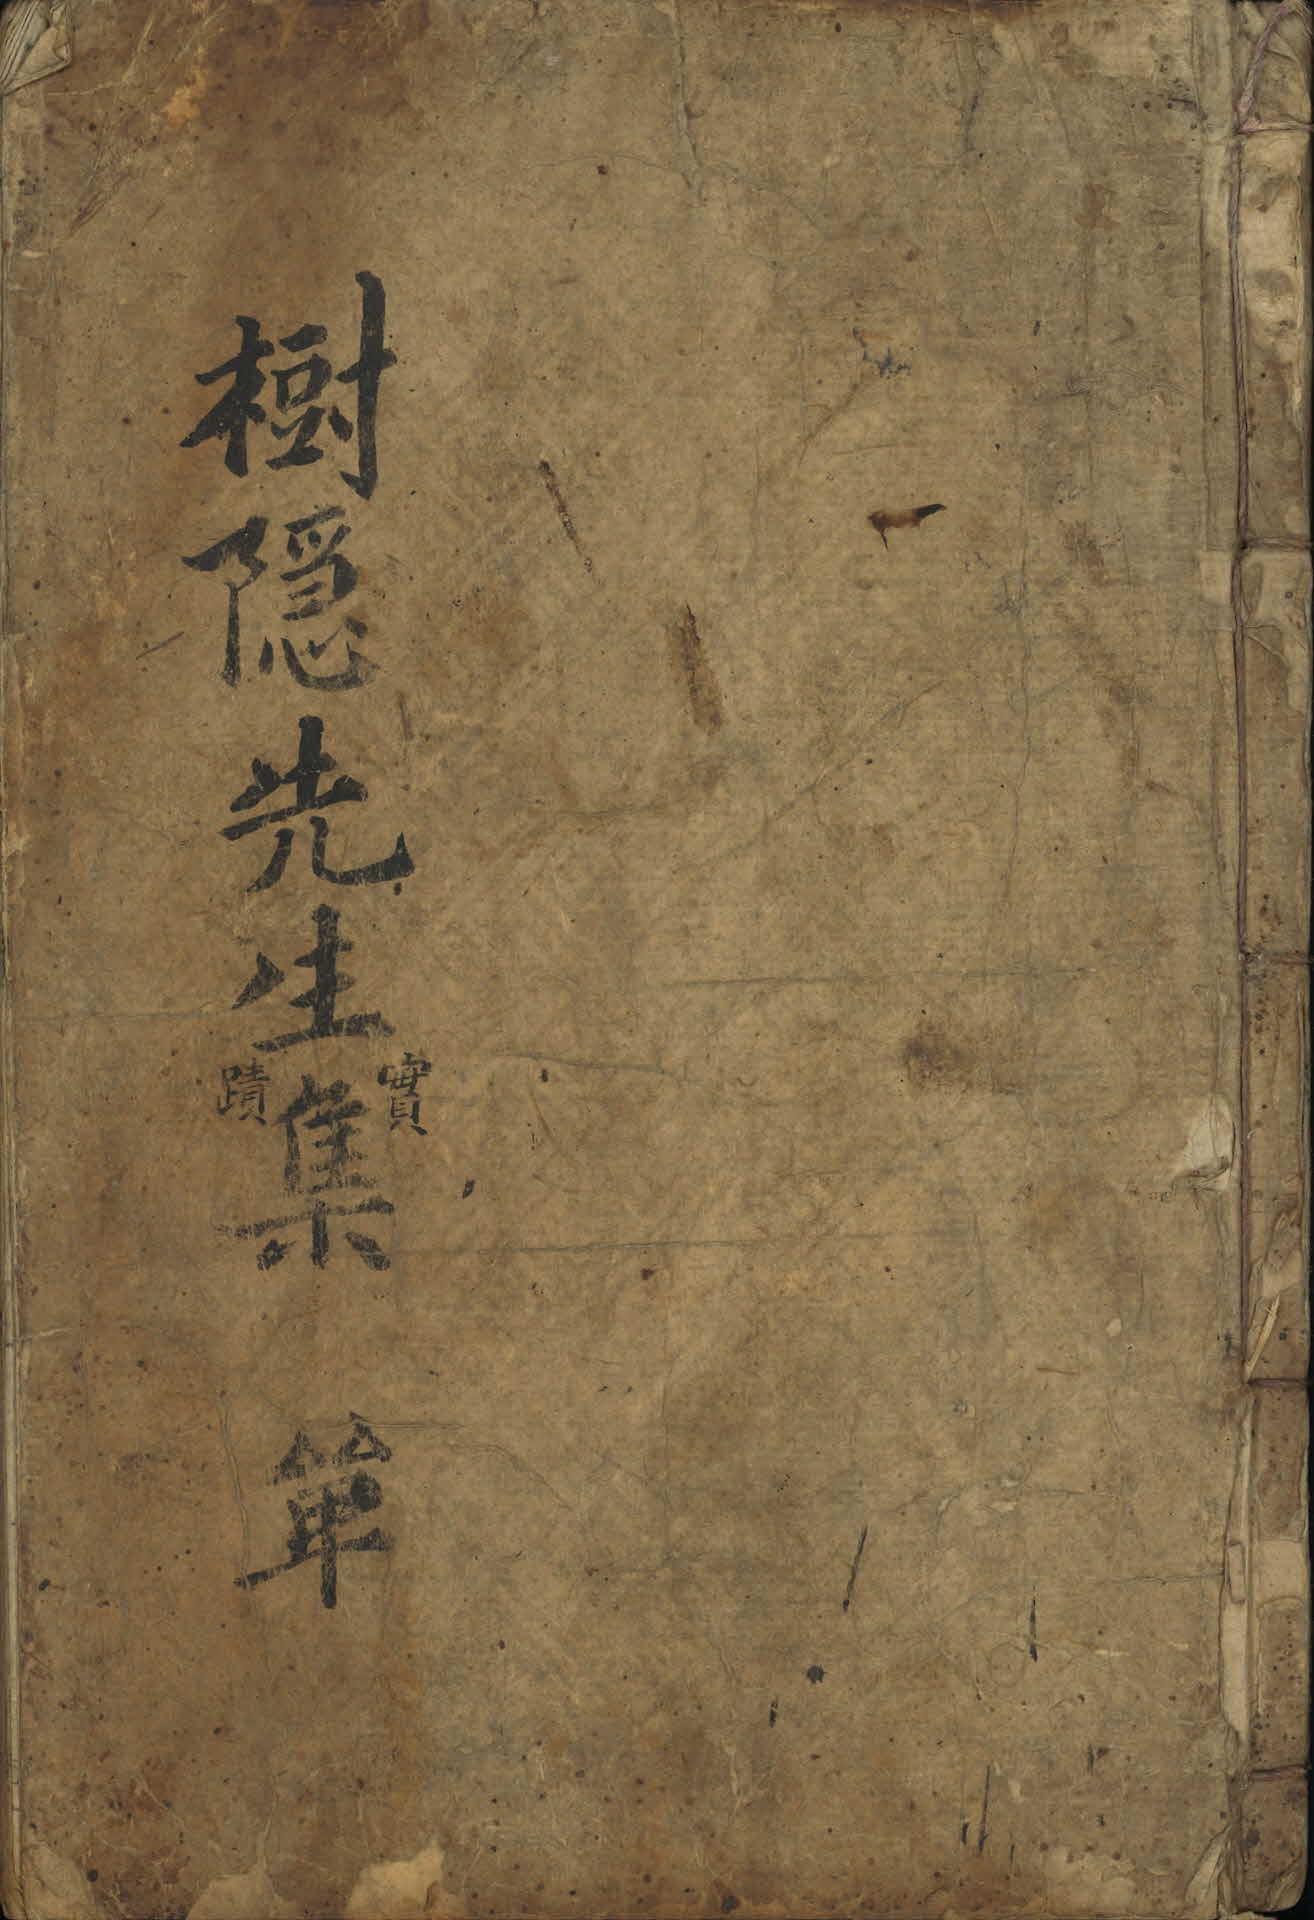 樹隱先生集 單
實蹟